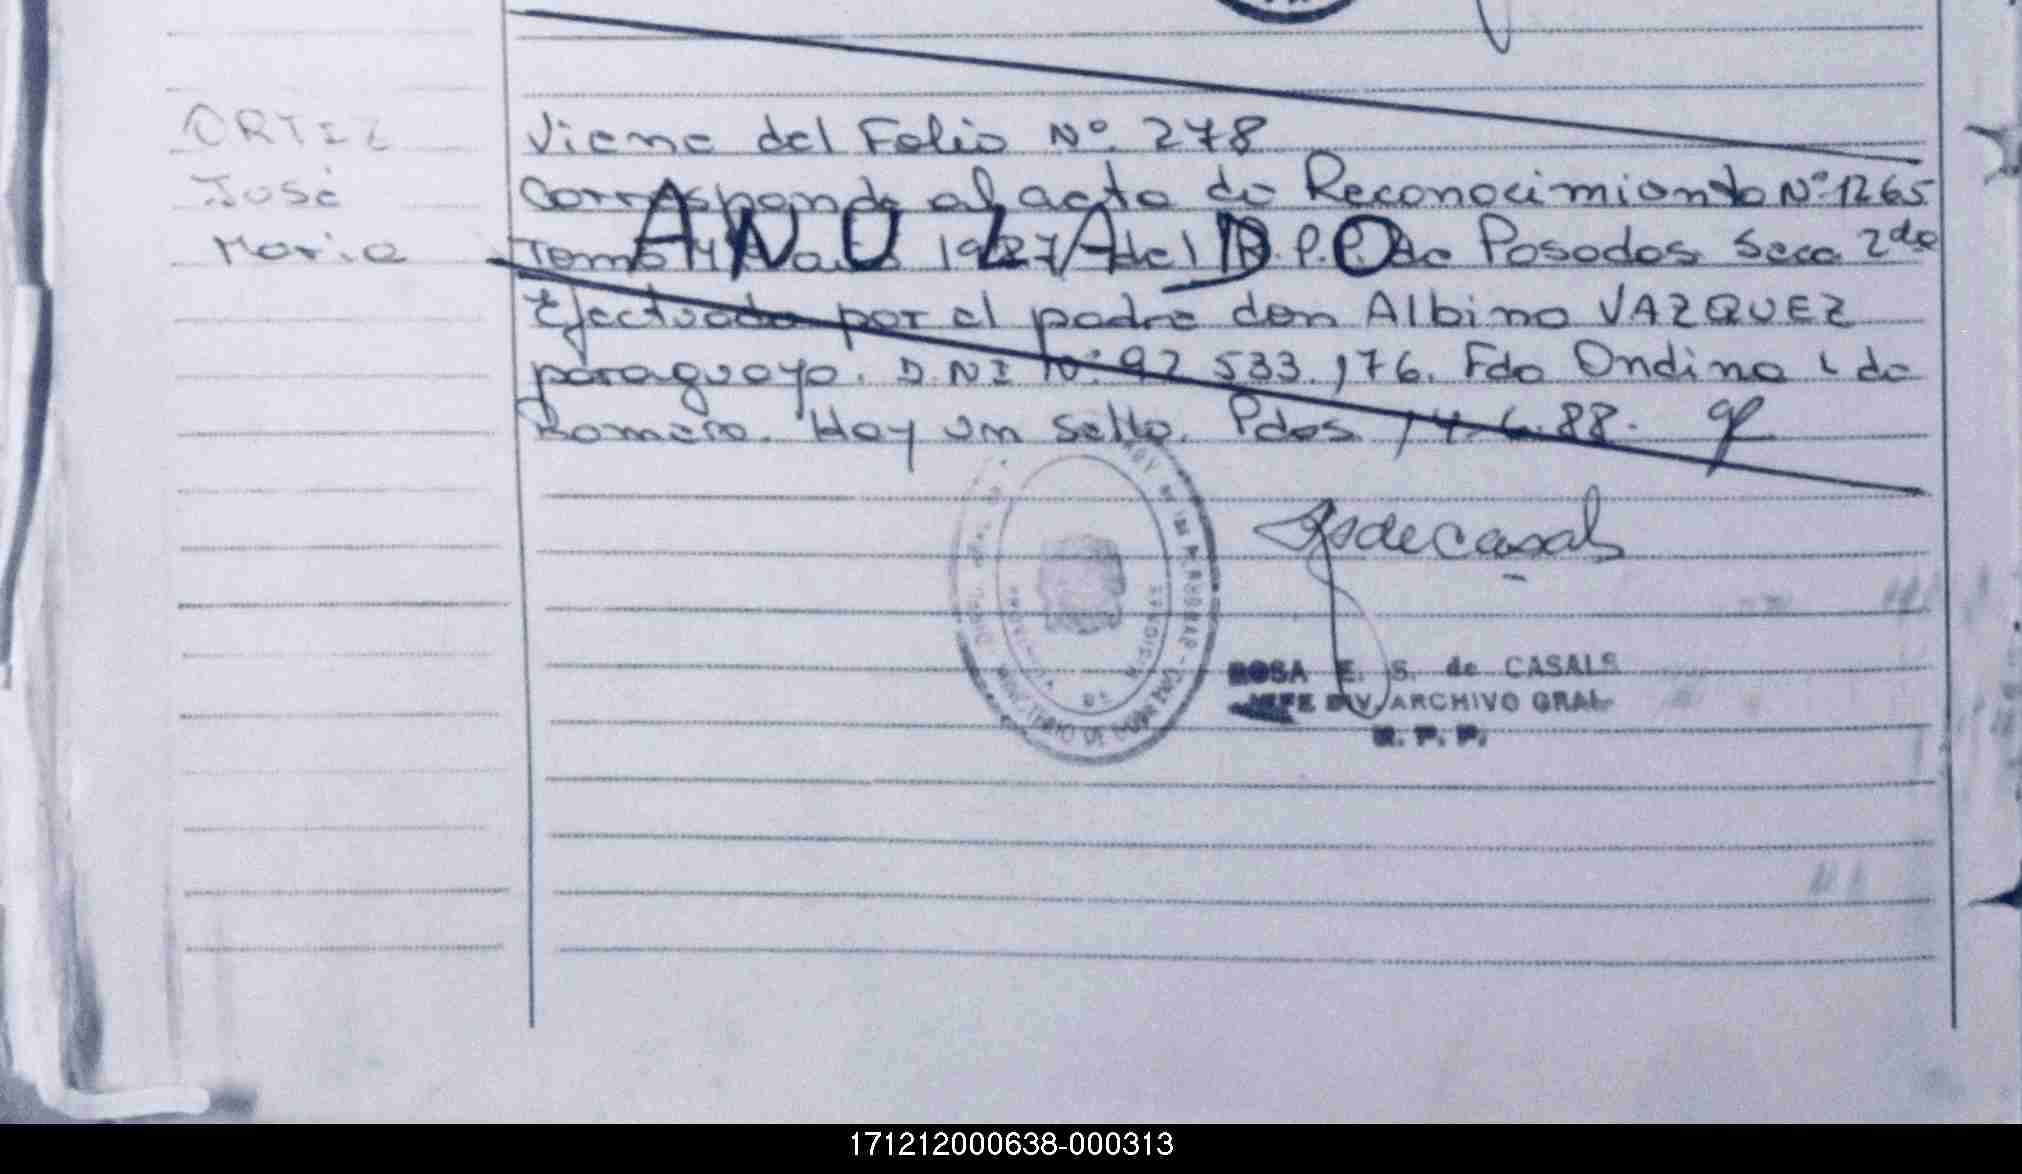 ORTIZ
José
Maria
Viene del Folio Nº 278
Corresponde al acta de Reconocimiento Nº 1265
Tomo 1987 del R.P.P. de Posadas Secc 2da
ANULADO
Efectuado por el padre don Albino VAZQUEZ
paraguayo. D.N.I Nº 92.533.176. Fdo Ondina L de
Romero. Hay un sello. Pdas 14.6.88.
ROSA E. S. de CASALS
JEFE DIV. ARCHIVO GRAL.
R. P. P.
171212000638-000313